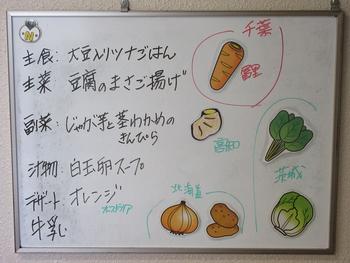 主食: 大豆入りツナごはん
主菜 豆腐のまさご揚げ
副菜: じゃが芋と茎わかめの
きんぴら
汁物: 白玉卵スープ
デザート オレンジ
オーストラリア
牛乳
千葉
高知
茨城
北海道